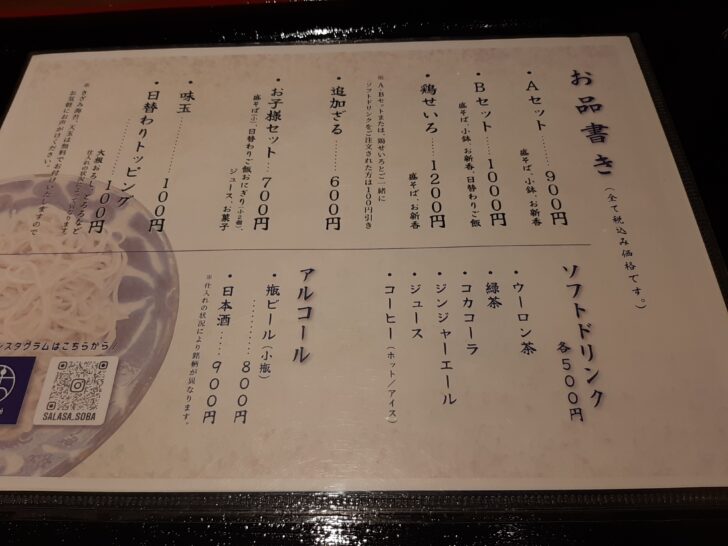 お品書き
(全て税込み価格です。)
・Aセット……900円
盛そば、小鉢、お新香
・Bセット……1000円
盛そば、小鉢、お新香、日替わりご飯
・鶏せいろ……1200円
盛そば、お新香
※A・Bセットまたは、鶏せいろとご一緒に
ソフトドリンクをご注文された方は100円引き
・追加ざる……600円
・お子様セット……700円
盛そば(小)、日替わりご飯おにぎり(小2個)、
ジュース、お菓子
・味玉……100円
・日替わりトッピング
……100円
大根おろし、とろろなど
仕入れの状況によって異なります。
※きざみ海苔、天玉は無料でお付けいたしますので
お気軽にお声がけください。
ソフトドリンク
各500円
・ウーロン茶
・緑茶
・コカコーラ
・ジンジャーエール
・ジュース
・コーヒー(ホット/アイス)
アルコール
・瓶ビール(小瓶)
……800円
・日本酒……900円
※仕入れの状況により銘柄が異なります。
ンスタグラムはこちらから
SALASA_SOBA